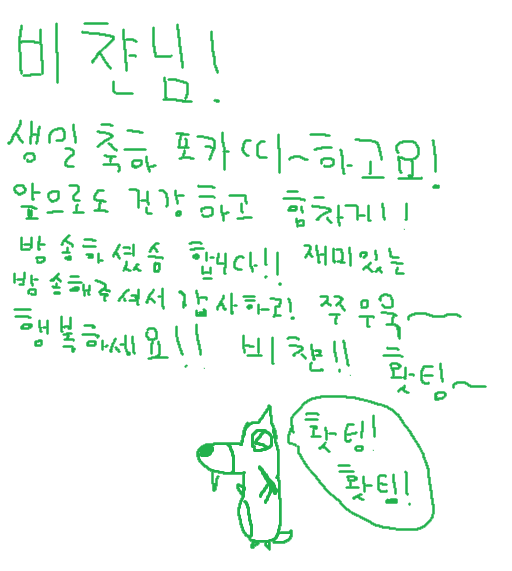 비챤님!
생일 축하 포카 ㄸㅣ~하고요!
앞으로도 건강하고 힘차게!!
방송하셨슴 합니다!! 재미있는
방송해주셔서 감사하고! 쭈우욱~
행복하세요!! 비챤!! 홧팅~
홧팅!
홧팅!